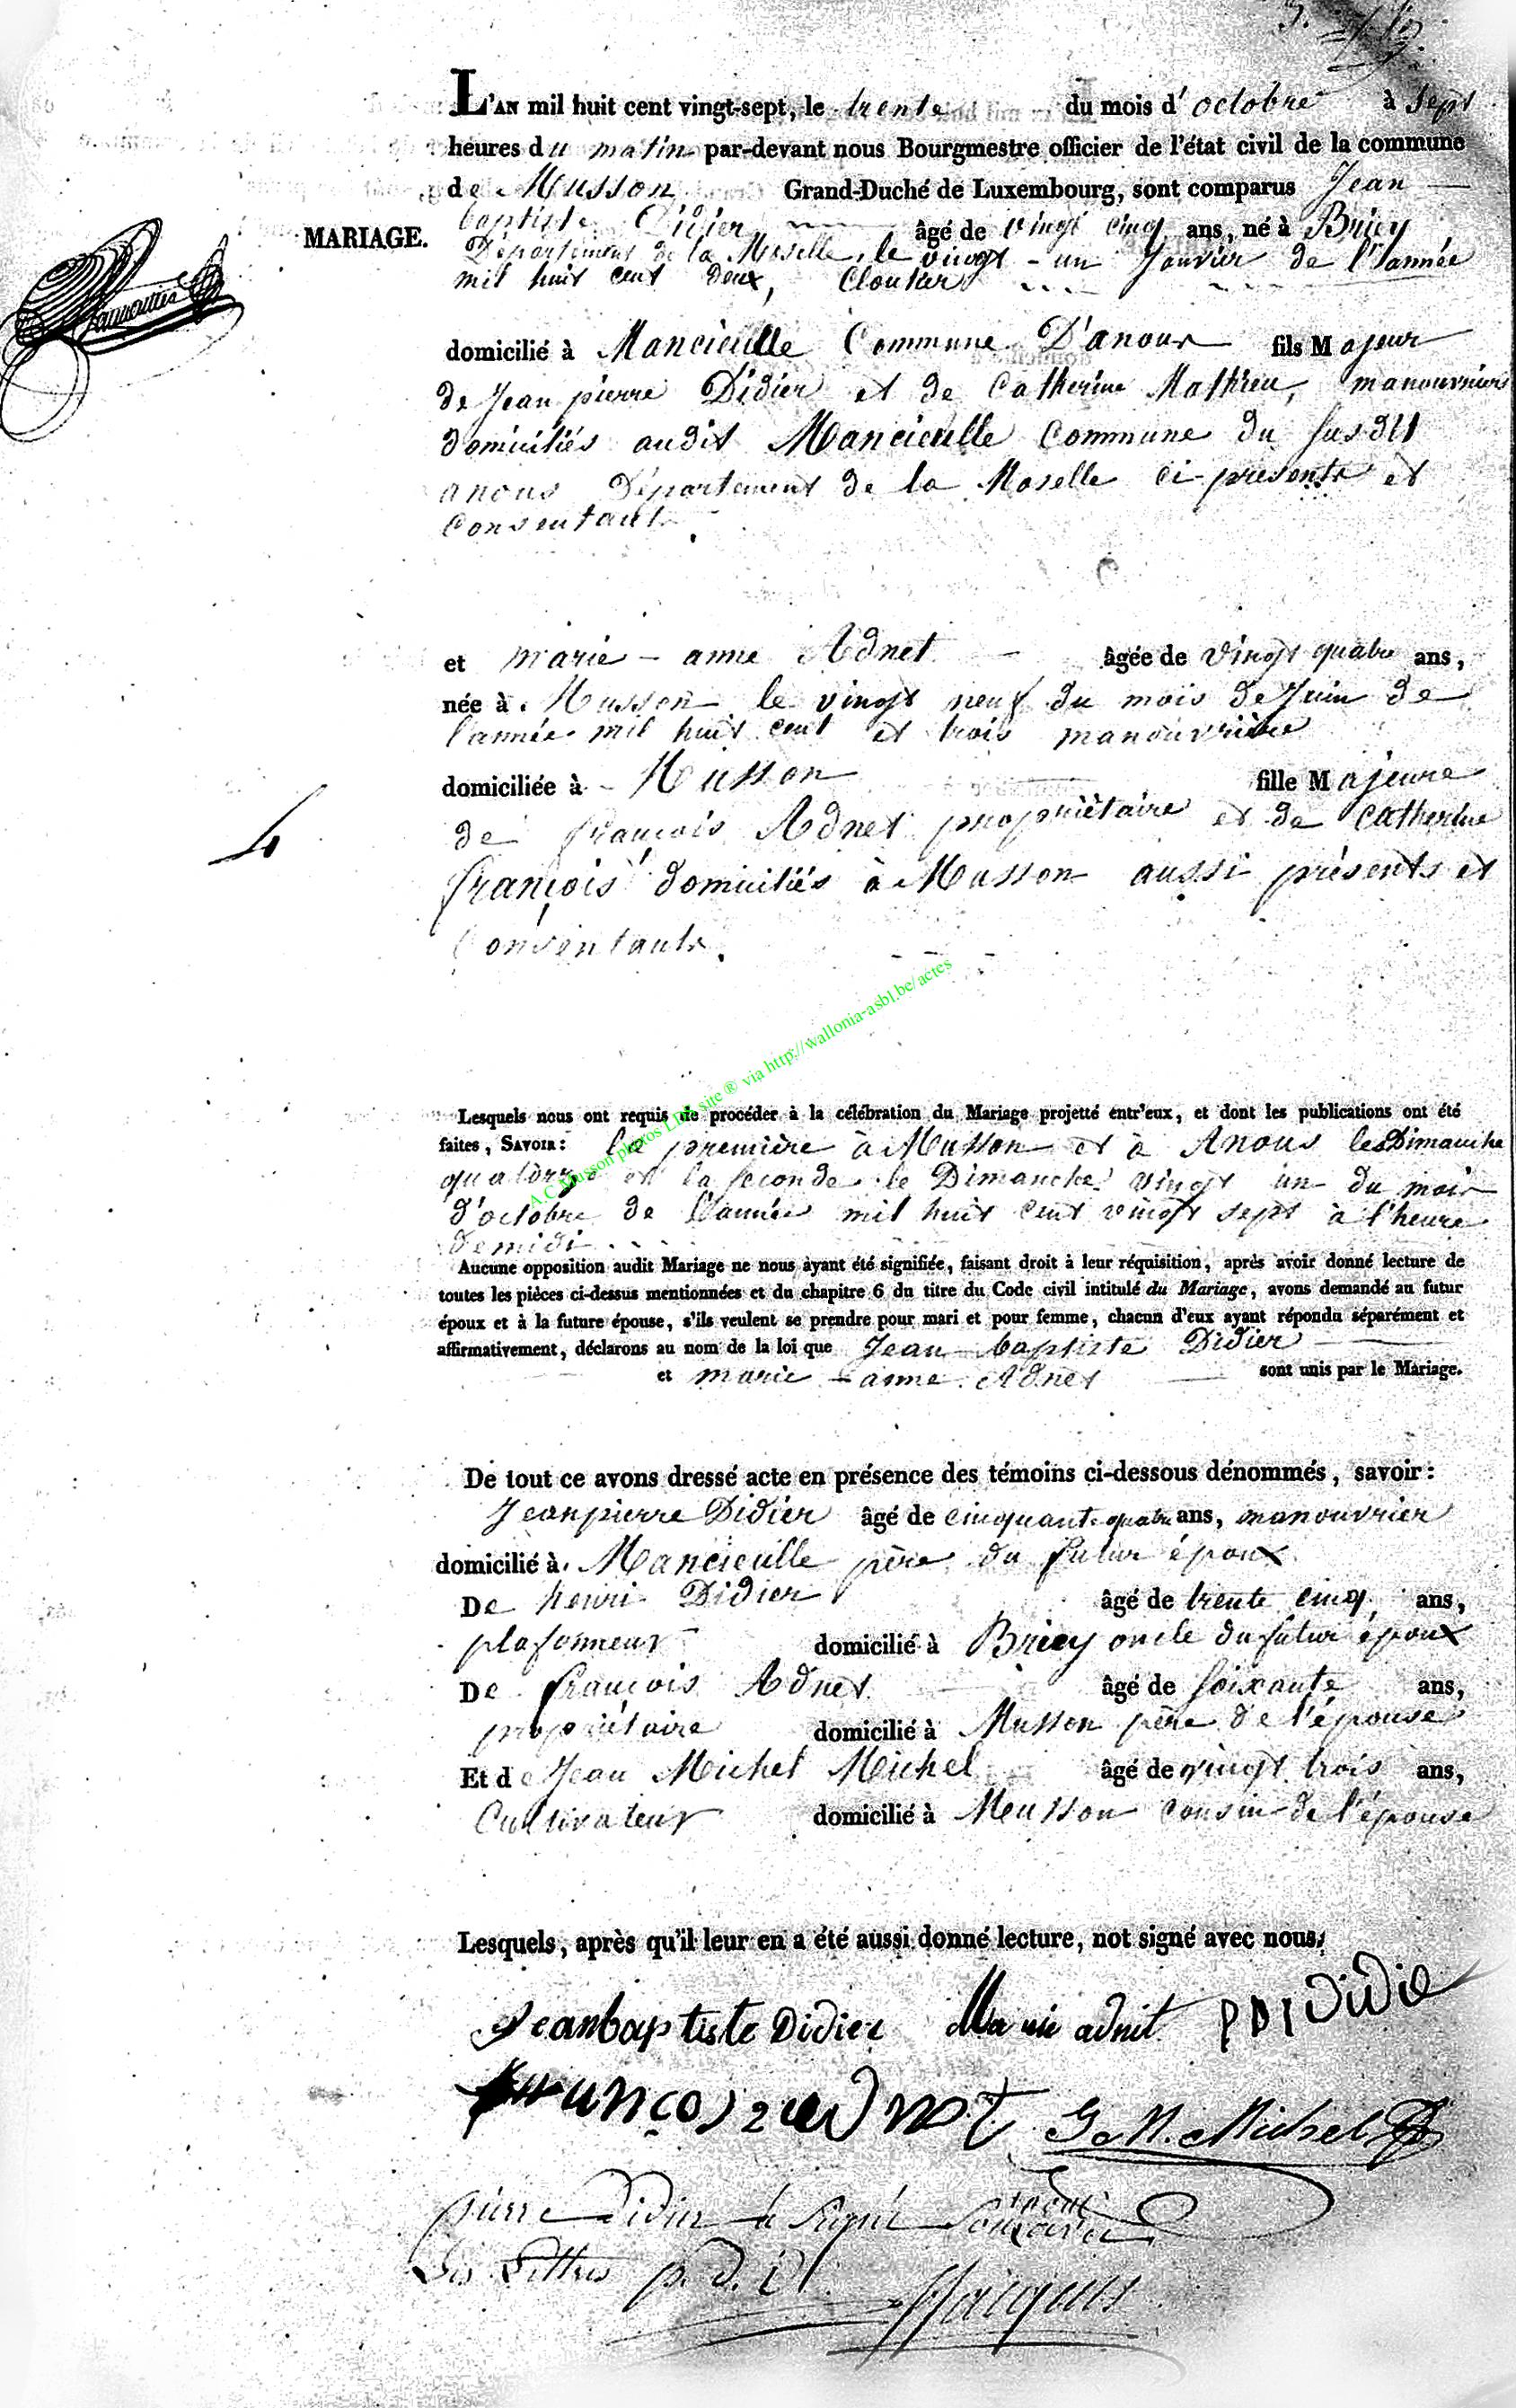 L'AN mil huit cent vingt-sept, le trente du mois d'octobre à sept
heures du matin par-devant nous Bourgmestre officier de l'état civil de la commune
de Musson Grand-Duché de Luxembourg, sont comparus Jean
MARIAGE.
baptiste Didier âgé de vingt cinq ans, né à Briey
Département de la Moselle, le vingt-un Janvier de l'année
mil huit cent deux, Cloutier
domicilié à Mancieulle Commune D'anoux fils Majeur
de Jean pierre Didier et de Catherine Mathieu, manouvriers
domiciliés audit Mancieulle Commune du susdit
anoux Département de la Moselle ci-presents et
Consentant.
et marie-anne Adnet âgée de vingt quatre ans,
née à Musson le vingt neuf du mois de Juin de
l'année mil huit cent et trois manouvrière
domiciliée à Musson fille Majeure
de françois Adnet propriétaire et de Catherine
françois domiciliés à Musson aussi présents et
Consentants.
A.C.Musson photos LDA site ® via http://wallonia-asbl.be/actes
Lesquels nous ont requis de procéder à la célébration du Mariage projetté entr'eux, et dont les publications ont été
faites, SAVOIR: la première à Musson et à Anoux les Dimanche
quatorze et la seconde le Dimanche vingt un du mois
d'octobre de l'année mil huit cent vingt sept à l'heure
de midi
Aucune opposition audit Mariage ne nous ayant été signifiée, faisant droit à leur réquisition, après avoir donné lecture de
toutes les pièces ci-dessus mentionnées et du chapitre 6 du titre du Code civil intitulé du Mariage, avons demandé au futur
époux et à la future épouse, s'ils veulent se prendre pour mari et pour femme, chacun d'eux ayant répondu séparément et
affirmativement, déclarons au nom de la loi que Jean-baptiste Didier
et marie-anne Adnet sont unis par le Mariage.
De tout ce avons dressé acte en présence des témoins ci-dessous dénommés, savoir:
Jeanpierre Didier âgé de cinquante quatre ans, manouvrier
domicilié à Mancieulle père du futur époux
De henri Didier âgé de trente cinq ans,
plafonneur domicilié à Briey oncle du futur époux
De françois Adnet âgé de soixante ans,
propriétaire domicilié à Musson père de l'épouse
Et de Jean Michel Michel âgé de vingt trois ans,
Cultivateur domicilié à Musson cousin de l'épouse
Lesquels, après qu'il leur en a été aussi donné lecture, not signé avec nous,
Jeanbaptiste Didier Marie adnet P D I Didie
françois adnet J. M. Michel
pierre Didier a signé
les lettres p. d. i. Jacques